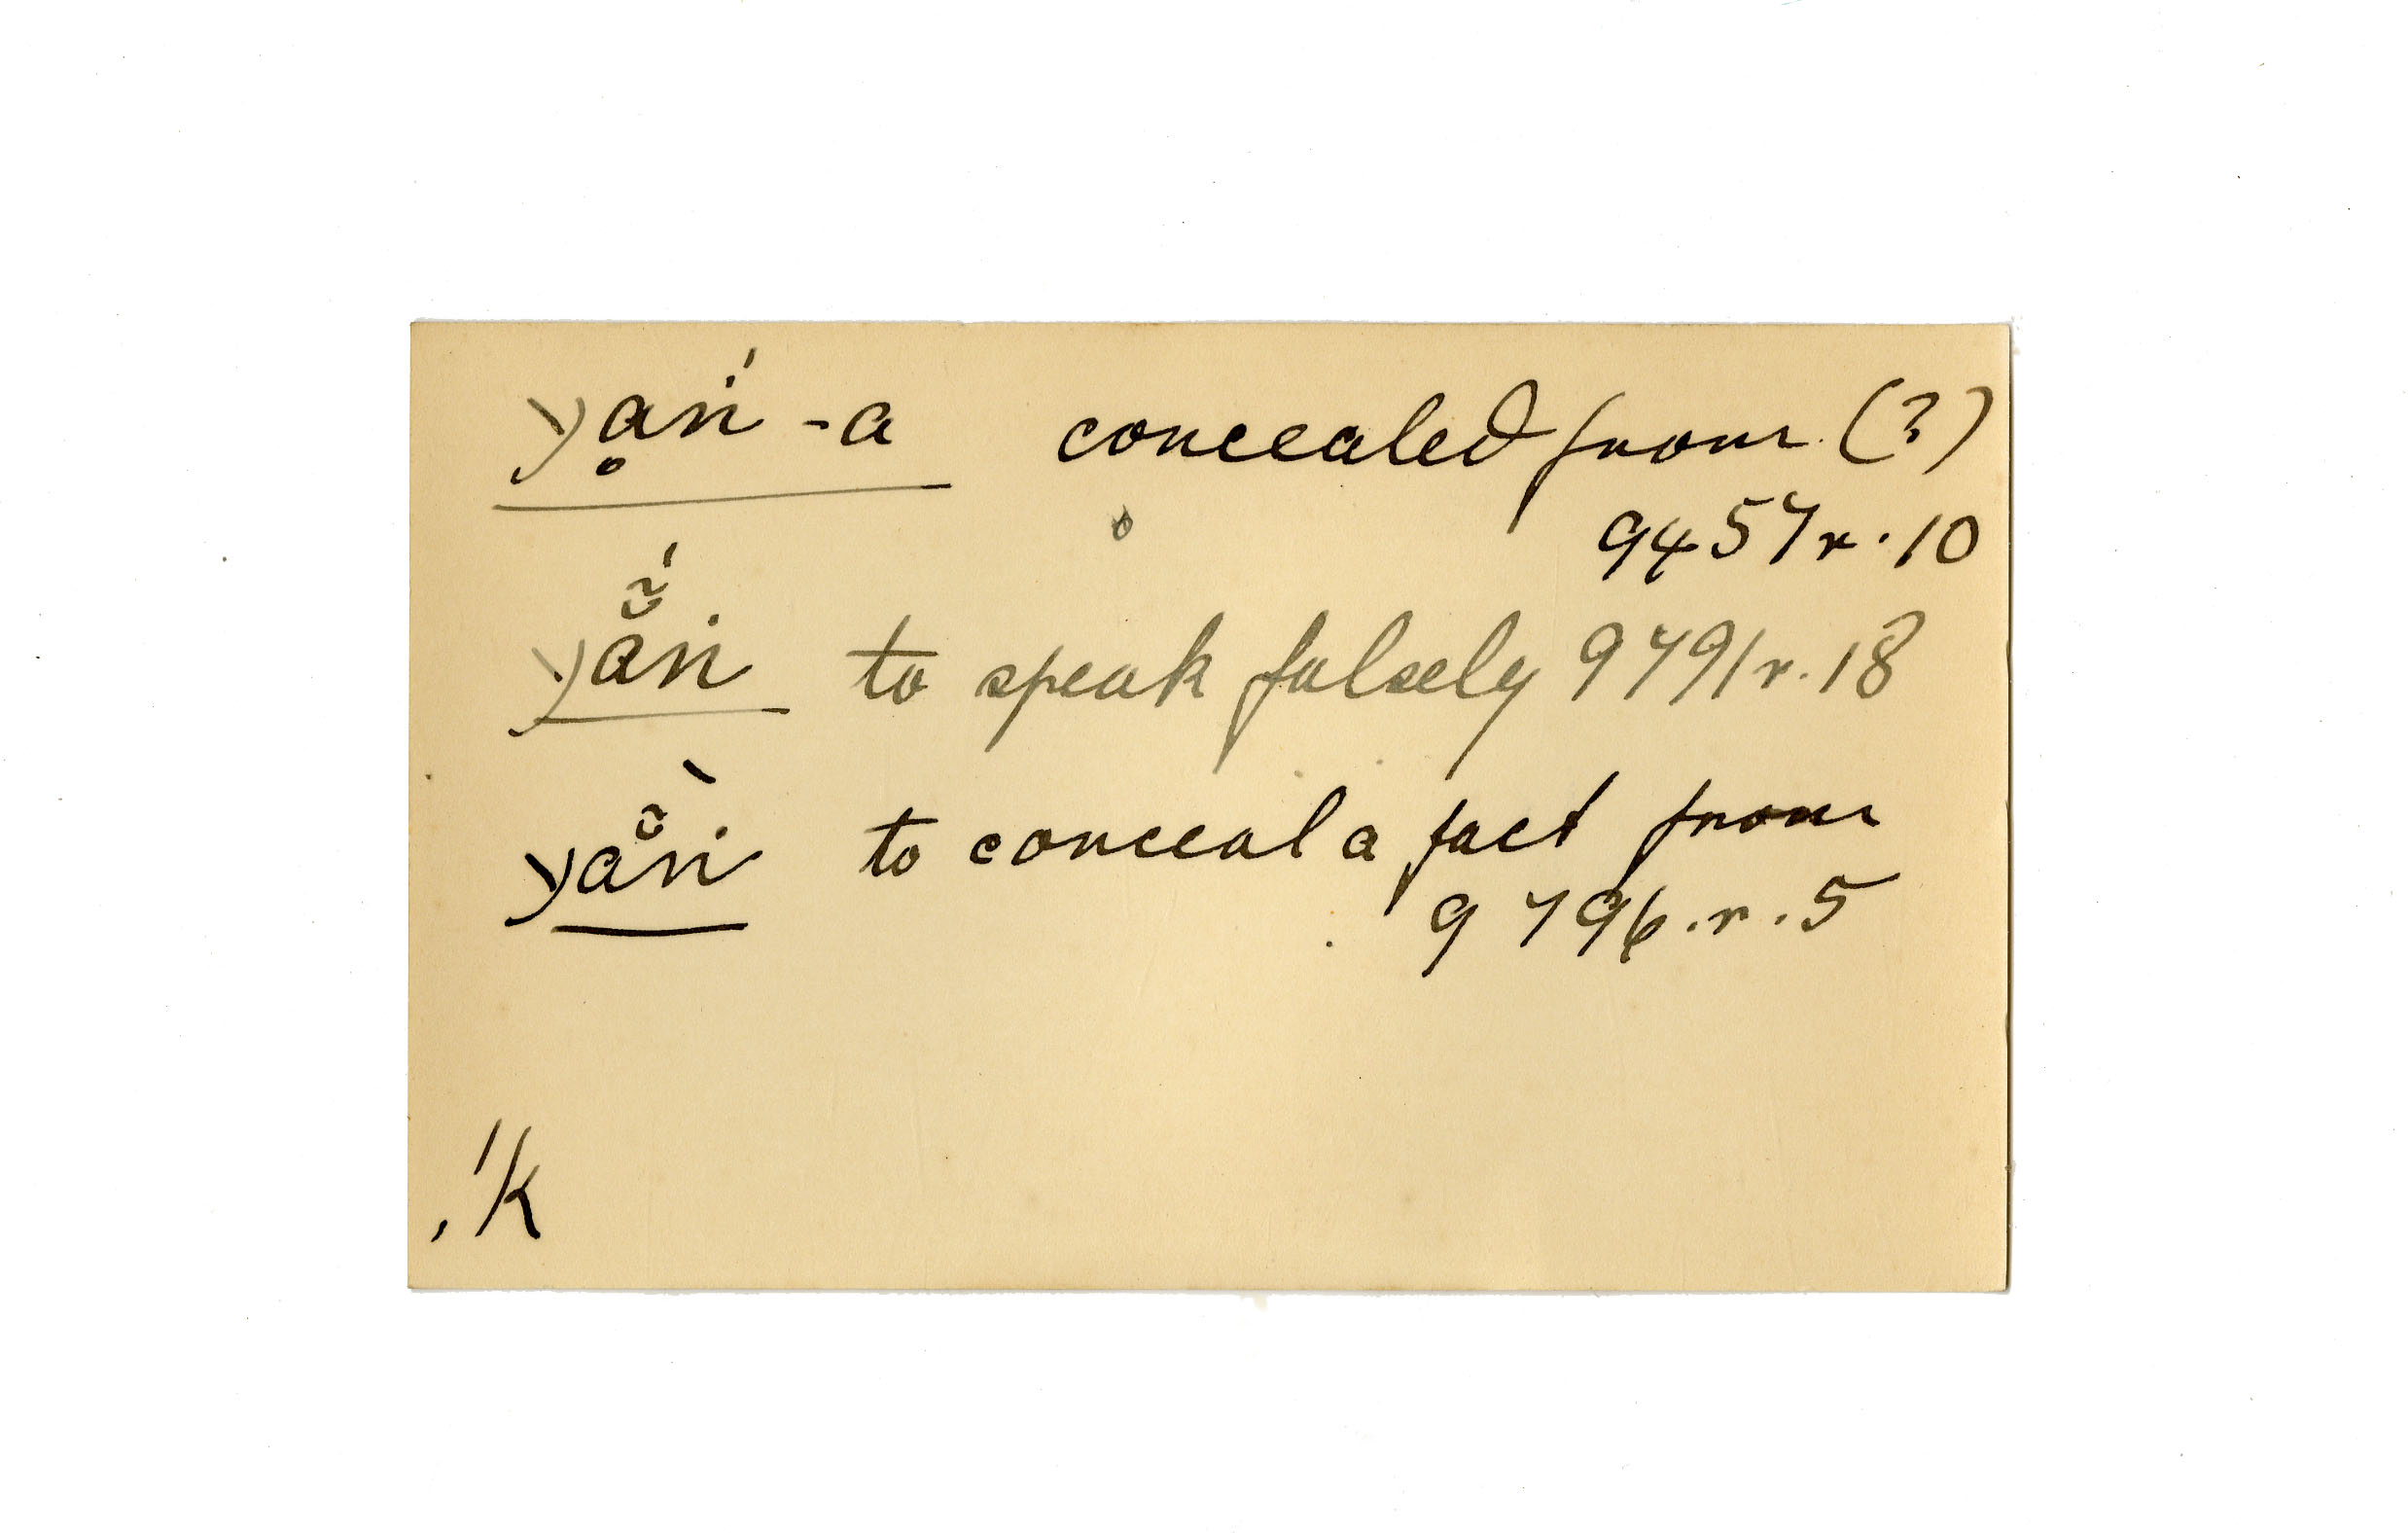 yạṅ́ -a concealed from (?)
9457 r. 10
yẵ́ṅ to speak falsely 9791 r. 18
yẵ̀ṅ to conceal a fact from
9796. r. 5
'K